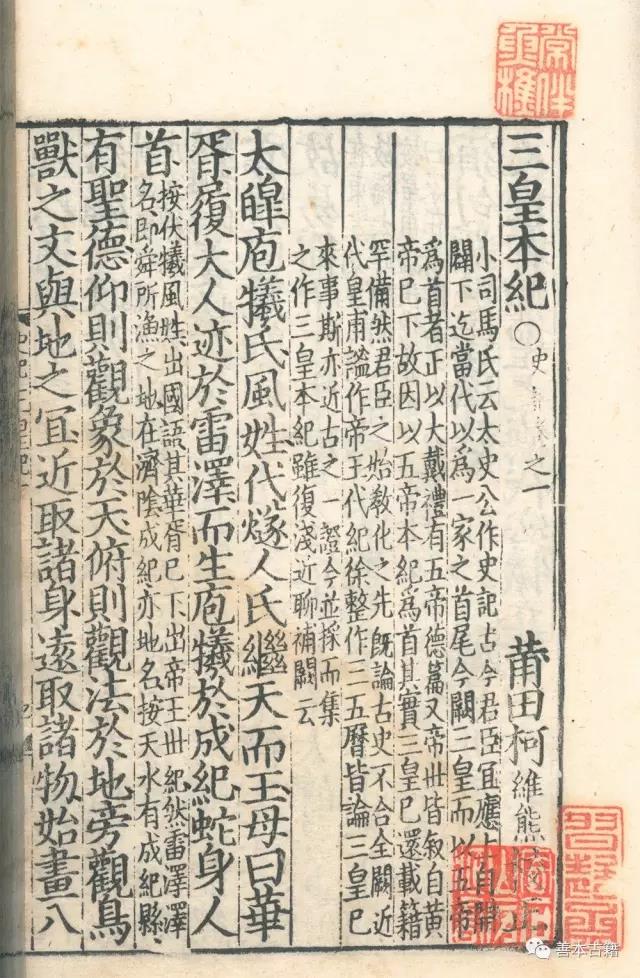 三皇本紀〇史記卷之一 莆田柯維熊校正
小司馬氏云太史公作史記古今君臣宜應上自開
闢下迄當代以爲一家之首尾今闕三皇而以五帝
爲首者正以大戴禮有五帝德篇又帝世皆叙自黃
帝已下故因以五帝本紀爲首其實三皇已還載籍
罕備然君臣之始教化之先旣論古史不合全闕近
代皇甫謐作帝王代紀徐整作三五曆皆論三皇已
來事斯亦近古之一證今並採而集
之作三皇本紀雖復淺近聊補闕云
太皥庖犧氏風姓代燧人氏繼天而王母曰華
胥履大人迹於雷澤而生庖犧於成紀蛇身人
首按伏犧風姓出國語其華胥已下出帝王世紀然雷澤澤
名即舜所漁之地在濟陰成紀亦地名按天水有成紀縣
有聖德仰則觀象於天俯則觀法於地旁觀鳥
獸之文與地之宜近取諸身遠取諸物始畫八
善本古籍